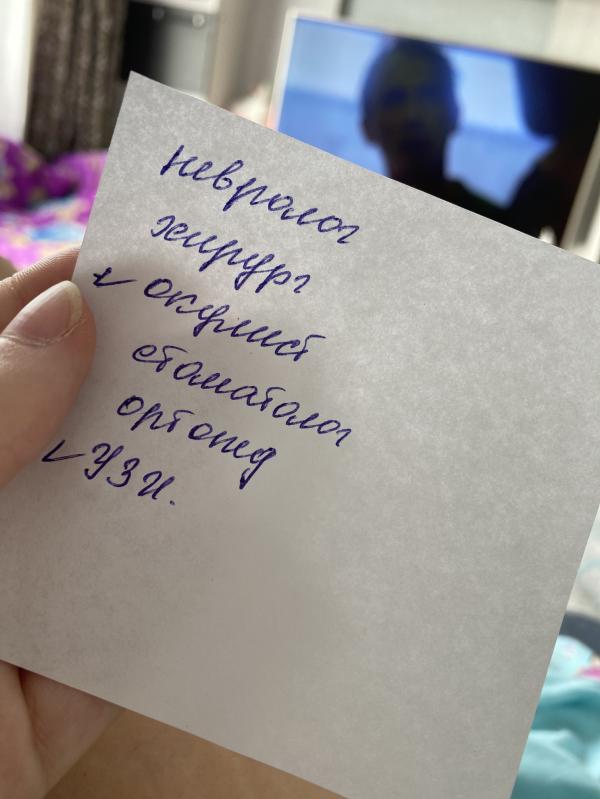 невролог
хирург
✓ окулист
стоматолог
ортопед
✓ УЗИ.